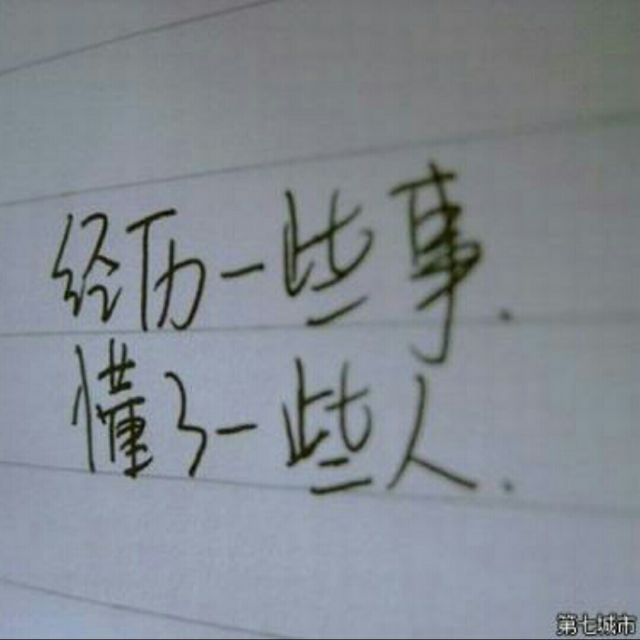 经历一些事.
懂了一些人.
第七城市